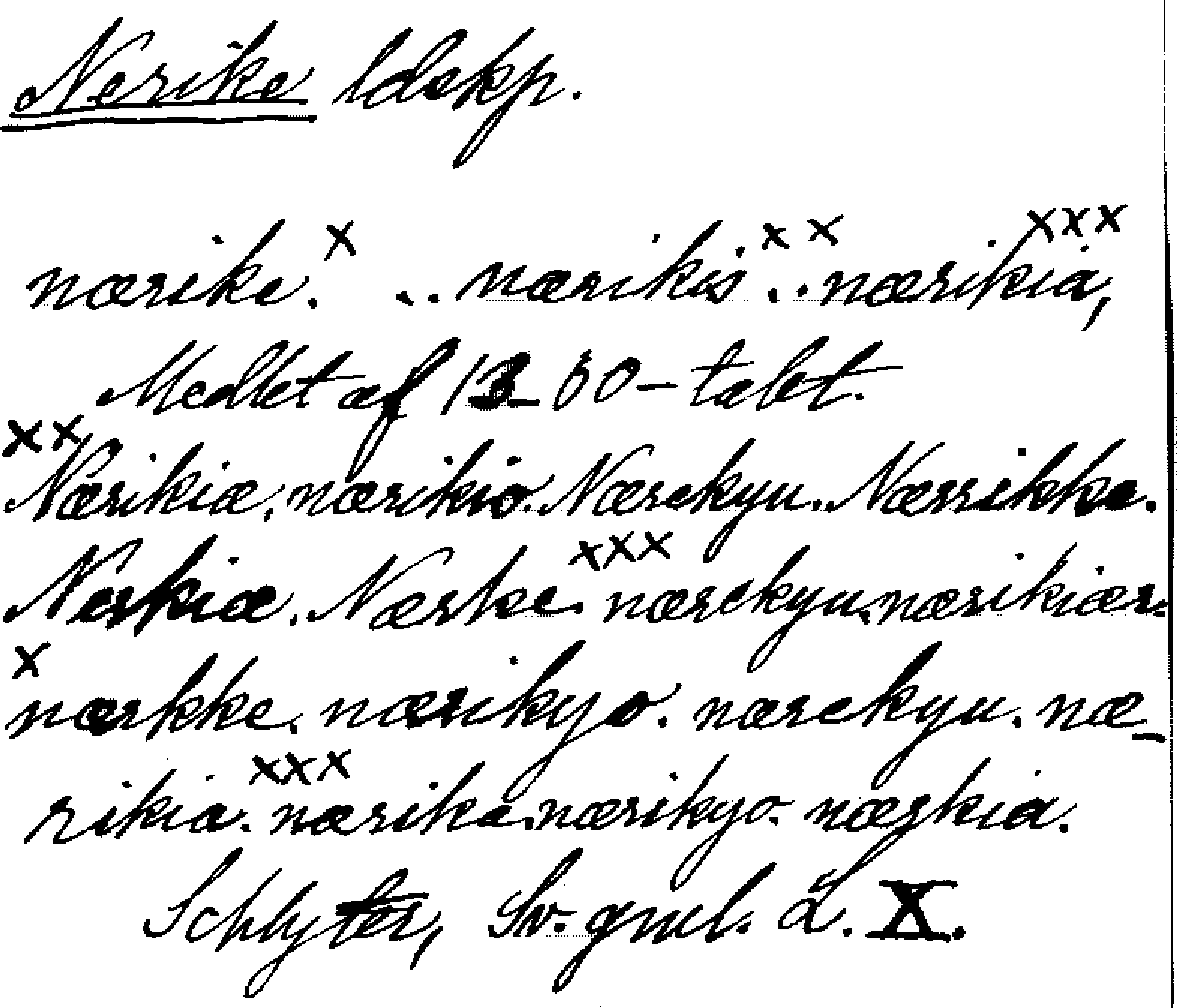 Nerike ldskp.
nærike.x ... nærikis.xx .. nærikia,xxx
Medlet af 1350-talet.
xx Nærikiæ. nærikio. Nærekyu. Nærrikke.
Nerkiæ. Nærke.xxx nærekyu. nærikiær.
x nærkke. nærikyo. nærekyu. næ-
rikia.xxx nærike. nærikyo. nærkia.
Schlyter, Sv. gml. L. X.